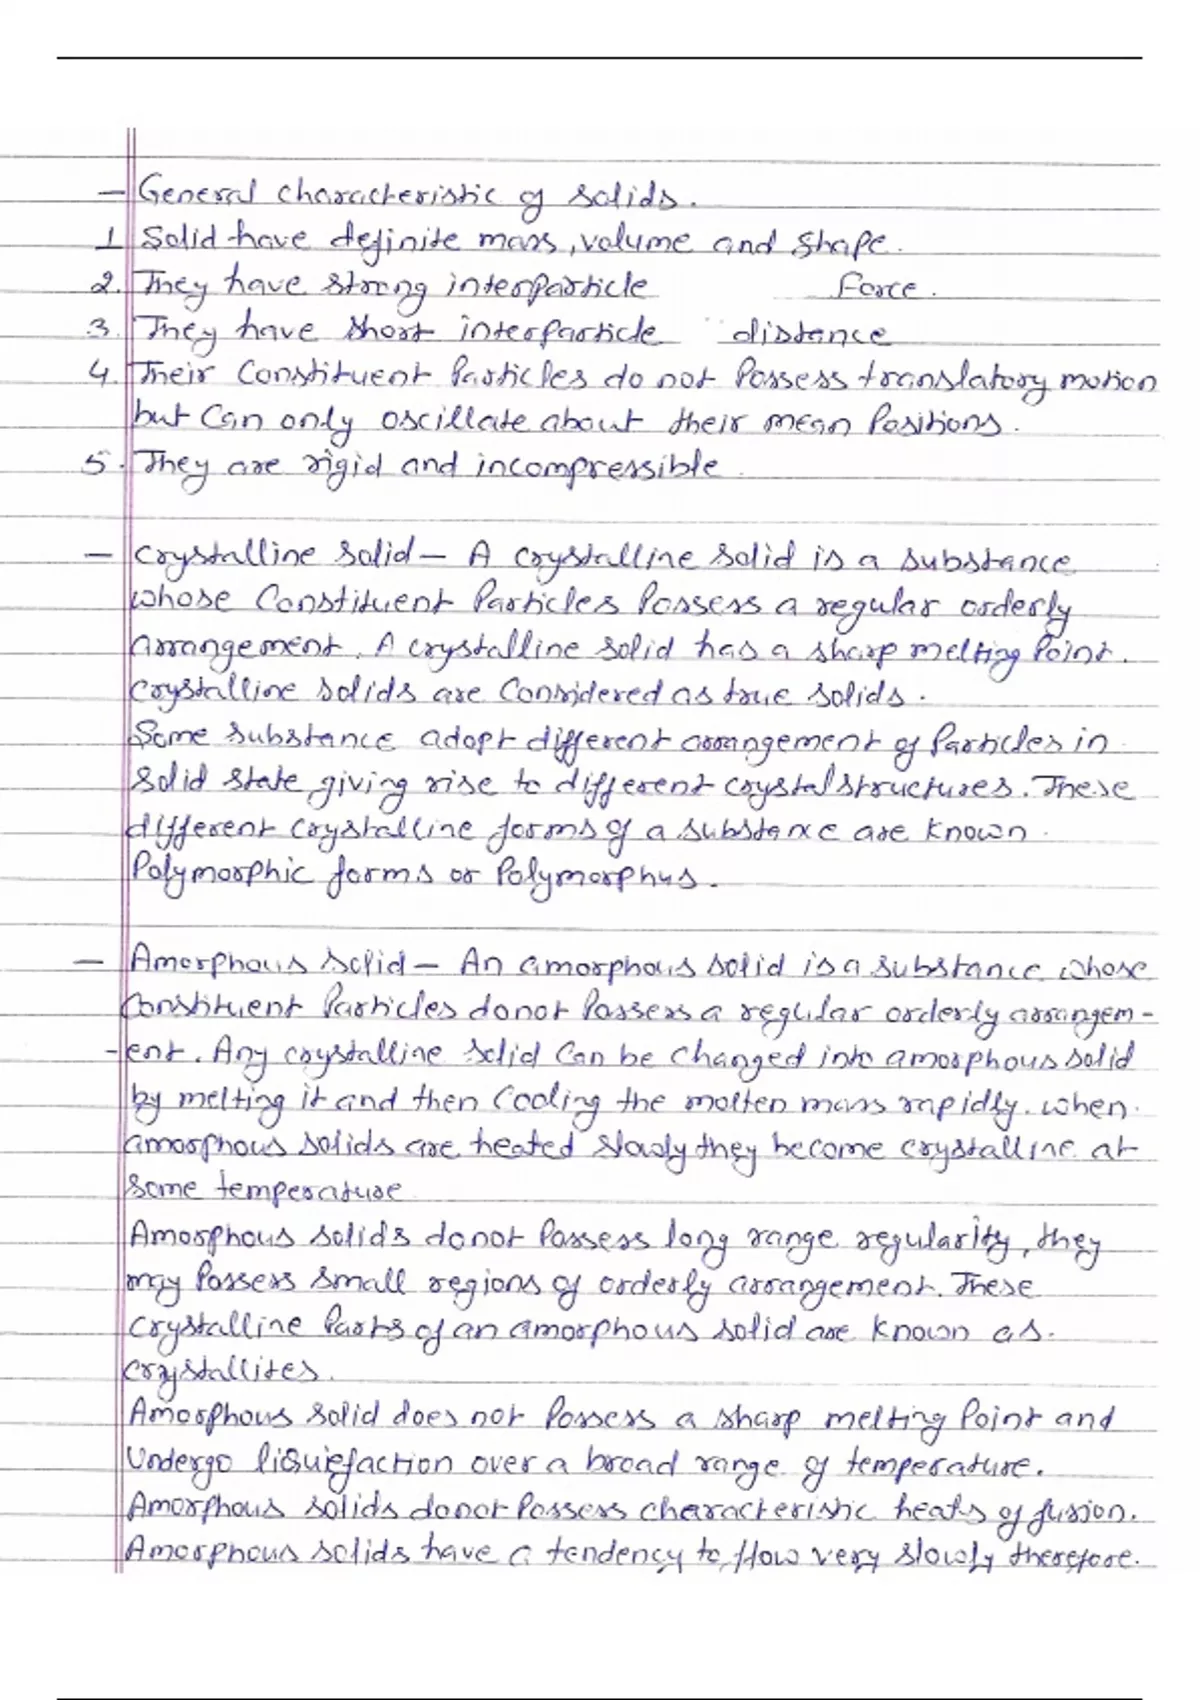 - General characteristic of solids.
1. Solid have definite mass, volume and shape.
2. They have strong interparticle force.
3. They have short interparticle distance
4. Their Constituent Particles do not Possess translatory motion
but Can only oscillate about their mean Positions.
5. They are rigid and incompressible.
- Crystalline solid - A crystalline solid is a substance
whose Constituent Particles Possess a regular orderly
arrangement. A crystalline solid has a sharp melting Point.
Crystalline solids are Considered as true solids.
Some substance adopt different arrangement of Particles in
solid state giving rise to different crystal structures. These
different crystalline forms of a substance are known
Polymorphic forms or Polymorphus.
- Amorphous solid - An amorphous solid is a substance whose
Constituent Particles donot Possess a regular orderly arrangem-
-ent. Any crystalline solid Can be changed into amorphous solid
by melting it and then Cooling the molten mass rapidly. when
amorphous solids are heated slowly they become crystalline at
some temperature
Amorphous solids donot Possess long range regularity, they
may Possess small regions of orderly arrangement. These
crystalline Parts of an amorphous solid are known as
crystallites.
Amorphous solid does not Possess a sharp melting Point and
Undergo liquiefaction over a broad range of temperature.
Amorphous solids donot Possess characteristic heats of fusion.
Amorphous solids have a tendency to flow very slowly therefore.